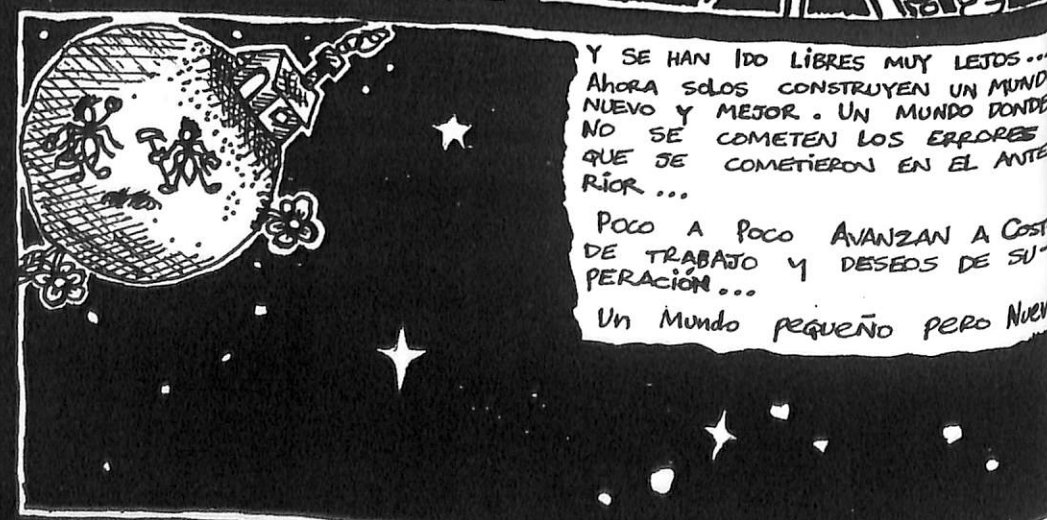 Y SE HAN IDO LIBRES MUY LEJOS...
AHORA SOLOS CONSTRUYEN UN MUND
NUEVO Y MEJOR. UN MUNDO DONDE
NO SE COMETEN LOS ERRORES
QUE SE COMETIERON EN EL ANTE
RIOR...
POCO A POCO AVANZAN A COST
DE TRABAJO Y DESEOS DE SU-
PERACIÓN...
Un Mundo pequeño pero Nuev